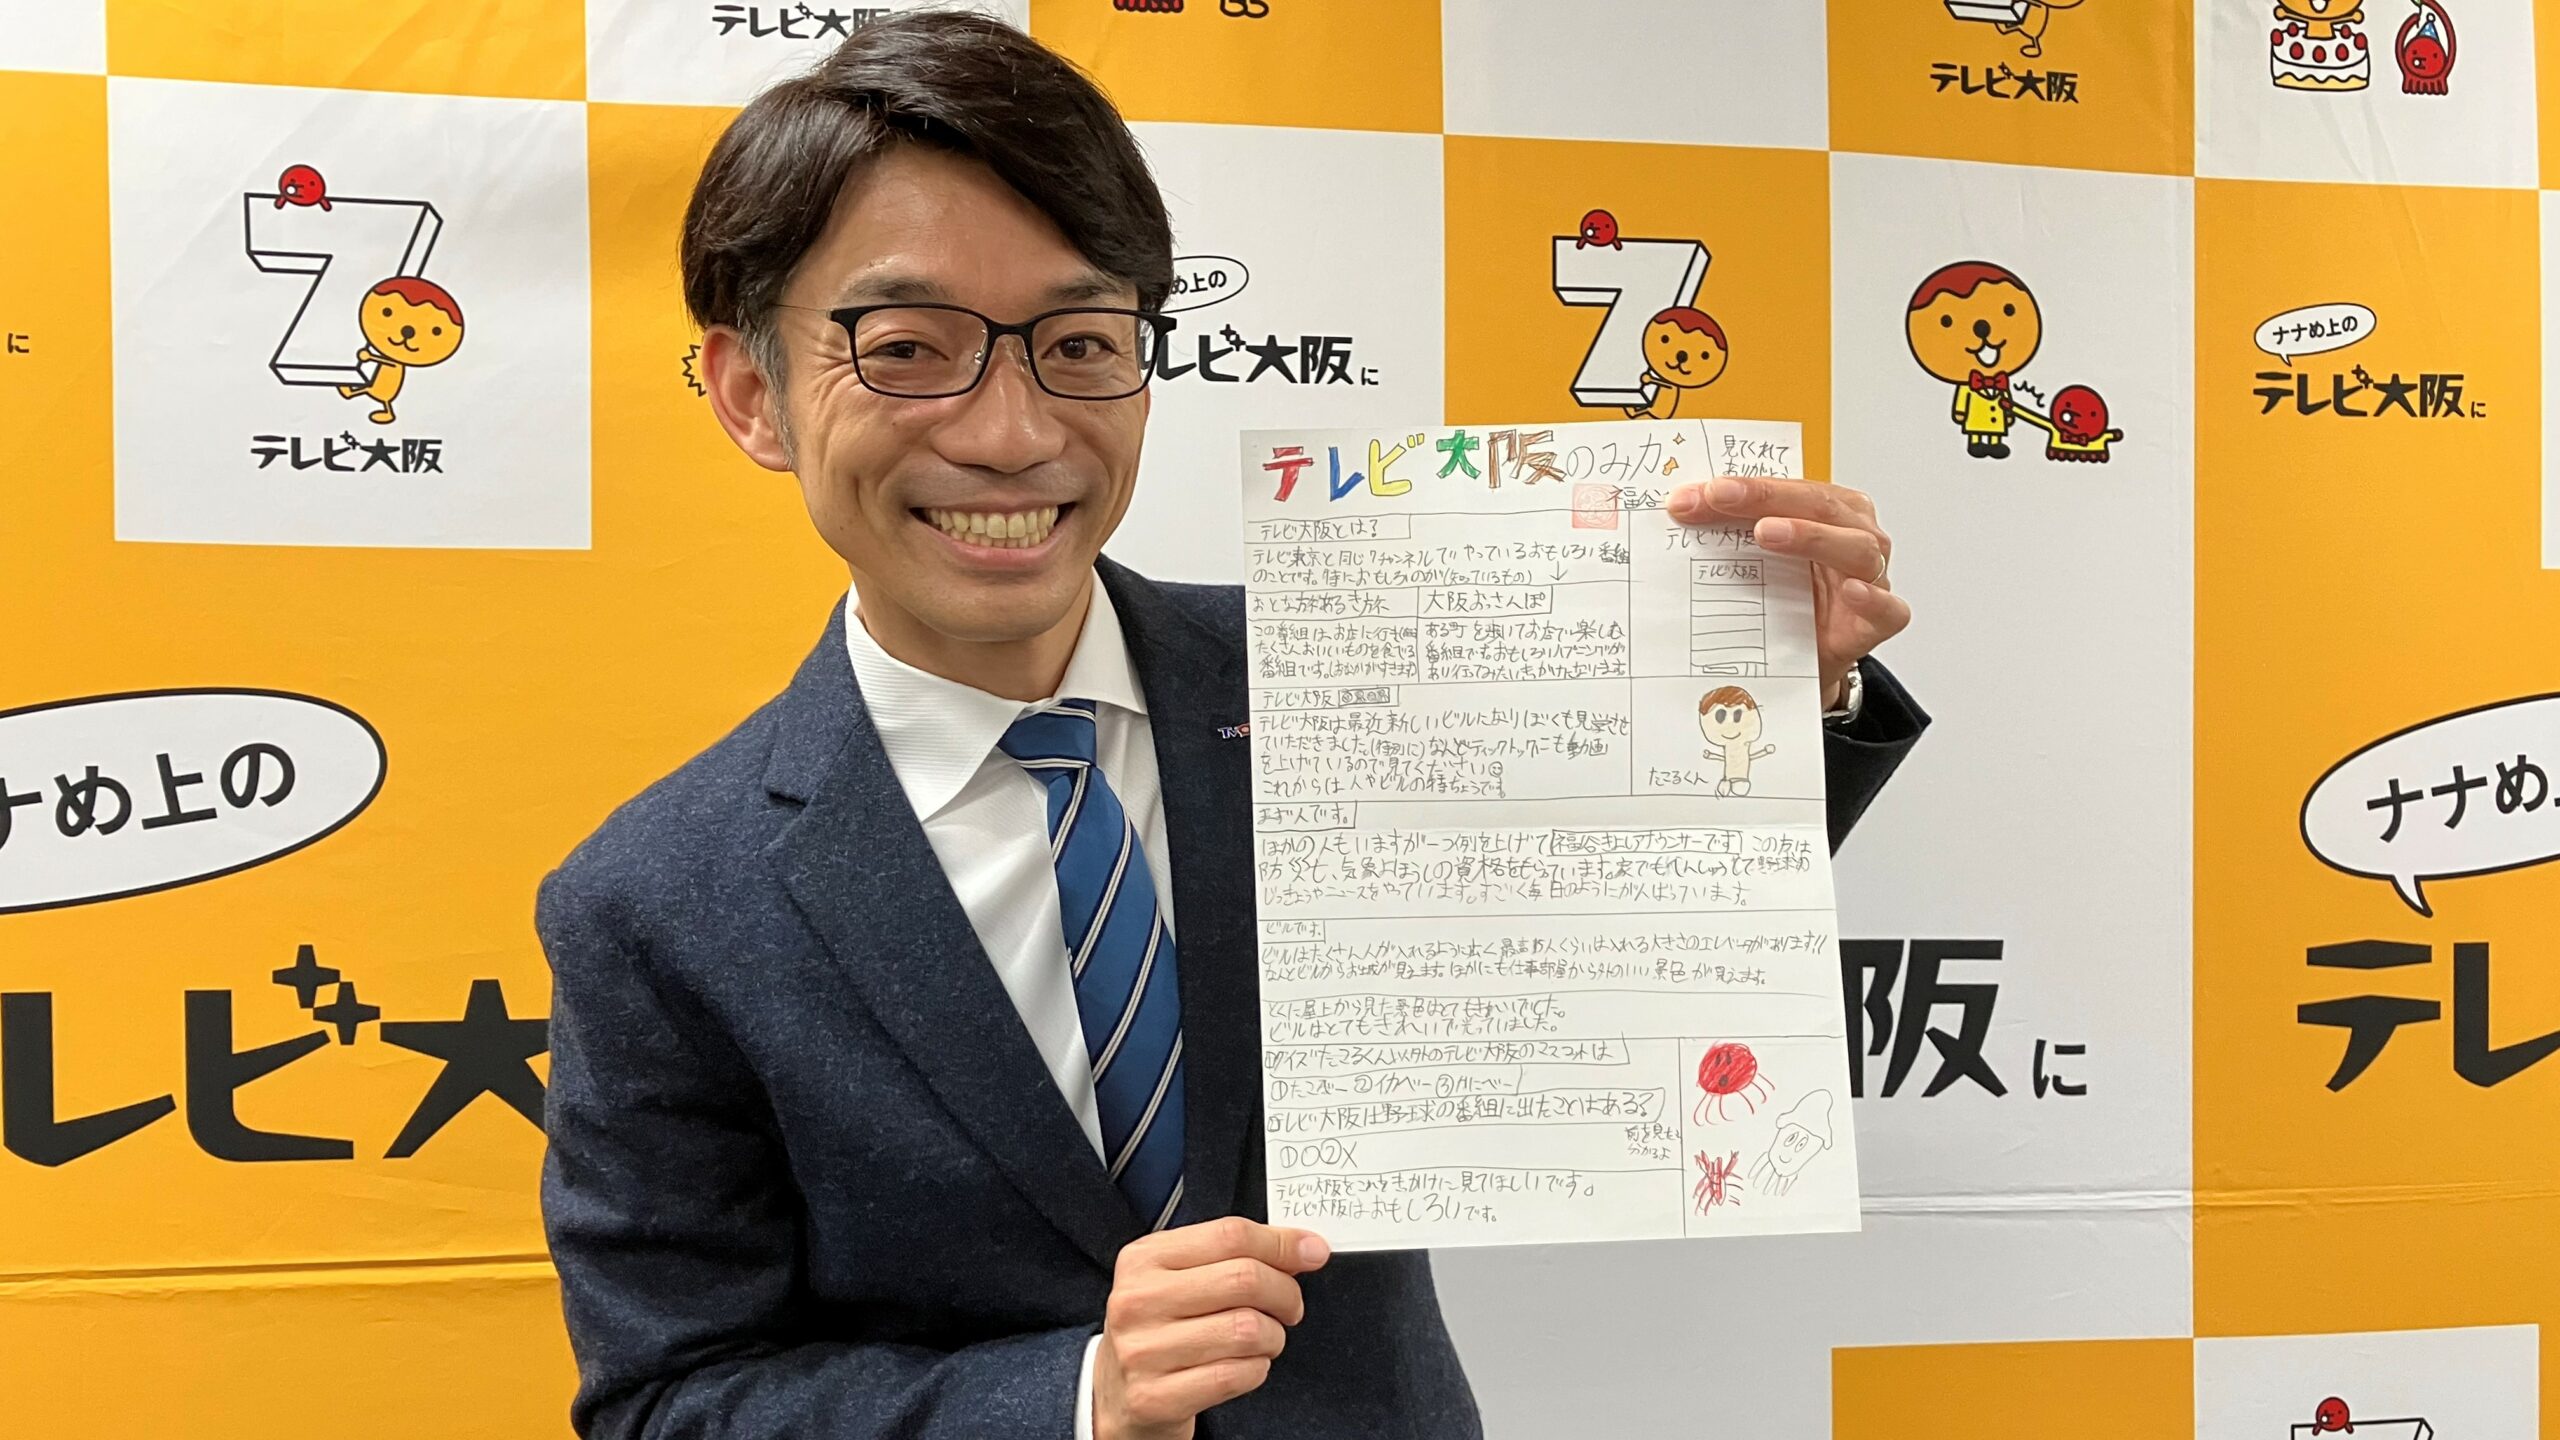 テレビ大阪
テレビ大阪
に
め上の
テレビ大阪に
ナナめ上の
テレビ大阪に
テレビ大阪
ナナめ上の
レビ大
阪に
ナナめ
テレ
テレビ大阪のみ力
見てくれて
ありがとう
福谷
テレビ大阪とは?
テレビ東京と同じ7チャンネルでやっているおもしろい番組
のことです。特におもしろいのが(知っているもの)↓
おとな旅あるき旅
この番組は、お店に行き
たくさんおいしいものを食べる
番組です。(おなかがすきます)
大阪おっさんぽ
ある町を歩いてお店で楽しむ
番組です。おもしろいハプニングが
あり行ってみたいきもちになります
テレビ大阪
たこるくん
テレビ大阪
テレビ大阪は最近新しいビルになりぼくも見学させ
ていただきました。(特別に)なんとティックトックにも動画
を上げているので見てください
これからは人やビルの特ちょうです。
まず人です。
ほかの人もいますが一つ例を上げて福谷きよしアナウンサーです この方は
防災士、気象よほうしの資格をもっています。家でもれんしゅうして野球の
じっきょうやニュースをやっています。すごく毎日のようにがんばっています。
ビルです。
ビルはたくさん人が入れるように広く最高 人くらいは入れる大きさのエレベータがあります!!
なんとビルからお城が見えます。ほかにも仕事部屋から外のいい景色が見えます。
とくに屋上から見た景色はとてもきれいでした。
ビルはとてもきれいで光っていました。
①クイズたこるくん以外のテレビ大阪のマスコットは
①たこべー②イカべー③かにべー
②テレビ大阪は野球の番組に出たことはある?
前を見ると
分かるよ
①○②✕
テレビ大阪をこれをきっかけに見てほしいです。
テレビ大阪はおもしろいです。